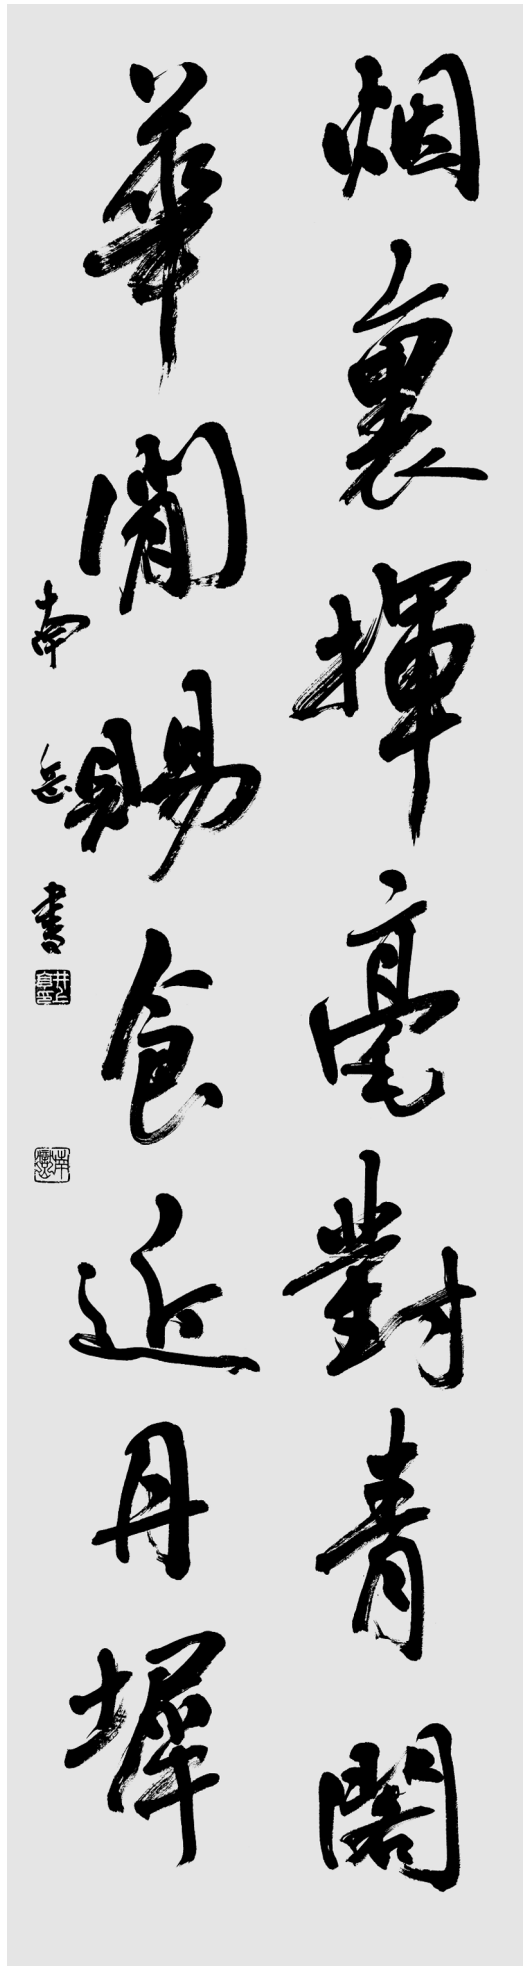 烟裏揮毫對青閣
華閒賜食近丹墀
南岳書